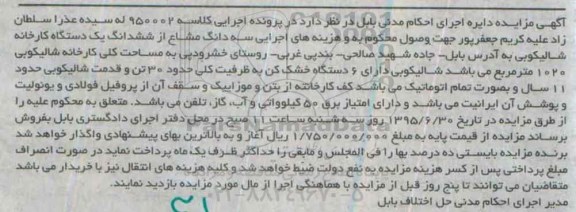 آگهی مزایده دایره اجرای احکام مدنی بابل در نظر دارد در پرونده اجرایی کلاسه ۹۵۰۰۰۲ له سیده عذرا سلطان
زاد علیه کریم جعفرپور جهت وصول محکوم به و هزینه های اجرایی سه دانگ مشاع از ششدانگ یک دستگاه کارخانه
شالیکوبی به آدرس بابل- جاده شهید صالحی- بندپی غربی- روستای خشرودپی به مساحت کلی کارخانه شالیکوبی
۱۰۲۰ مترمربع می باشد شالیکوبی دارای ۶ دستگاه خشک کن به ظرفیت کلی حدود ۳۰ تن و قدمت شالیکوبی حدود
۱۱ سال و بصورت تمام اتوماتیک می باشد کف کارخانه از بتن و موزاییک و سقف آن از پروفیل فولادی و یونولیت
و پوشش آن ایرانیت می باشد و دارای امتیاز برق ۵۰ کیلوواتی و آب، گاز، تلفن می باشد. متعلق به محکوم علیه را
از طرق مزایده در تاریخ ۱۳۹۵/۶/۳۰ روز سه شنبه ساعت ۱۱ صبح در محل دفتر اجرای دادگستری بابل بفروش
برساند مزایده از قیمت پایه به مبلغ ۱/۷۵۰/۰۰۰/۰۰۰ ریال آغاز و به بالاترین بهای پیشنهادی واگذار خواهد شد
برنده مزایده بایستی ده درصد بها را فی المجلس و مابقی را حداکثر ظرف یک ماه پرداخت نماید در صورت انصراف
مبلغ پرداختی پس از کسر هزینه مزایده به نفع دولت ضبط خواهد شد و کلیه هزینه های انتقال نیز با خریدار می باشد
متقاضیان می توانند تا پنج روز قبل از مزایده با هماهنگی اجرا از مال مورد مزایده بازدید نمایند.
مدیر اجرای احکام مدنی حل اختلاف بابل